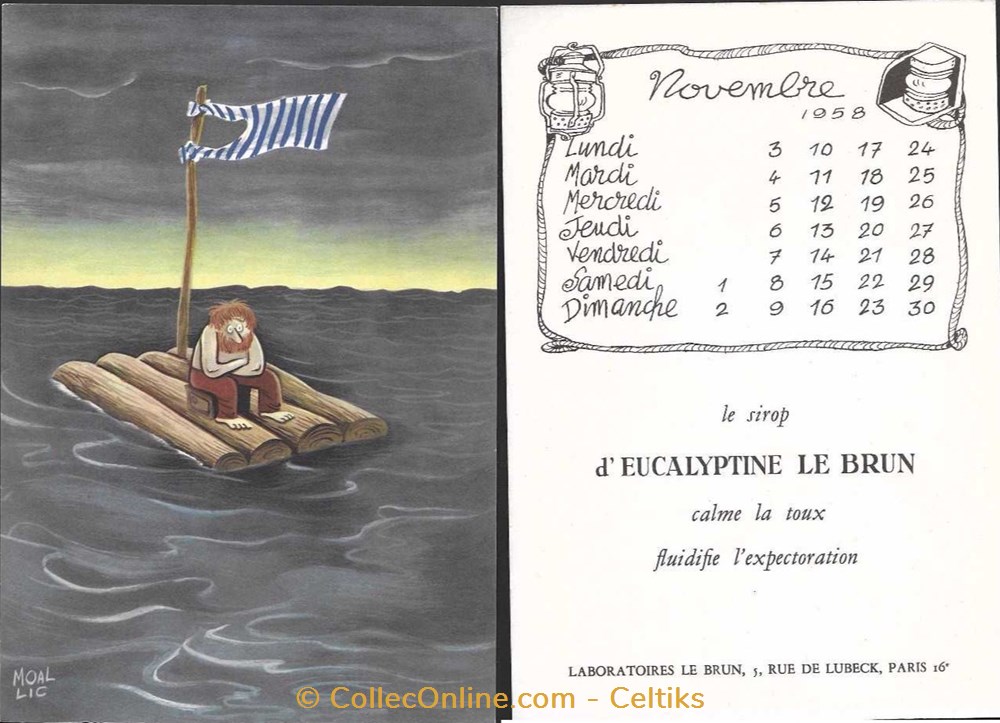 MOAL
LIC
Novembre
1958
Lundi 3 10 17 24
Mardi 4 11 18 25
Mercredi 5 12 19 26
Jeudi 6 13 20 27
Vendredi 7 14 21 28
Samedi 1 8 15 22 29
Dimanche 2 9 16 23 30
le sirop
d'EUCALYPTINE LE BRUN
calme la toux
fluidifie l'expectoration
LABORATOIRES LE BRUN, 5, RUE DE LUBECK, PARIS 16e
© CollecOnline.com - Celtiks